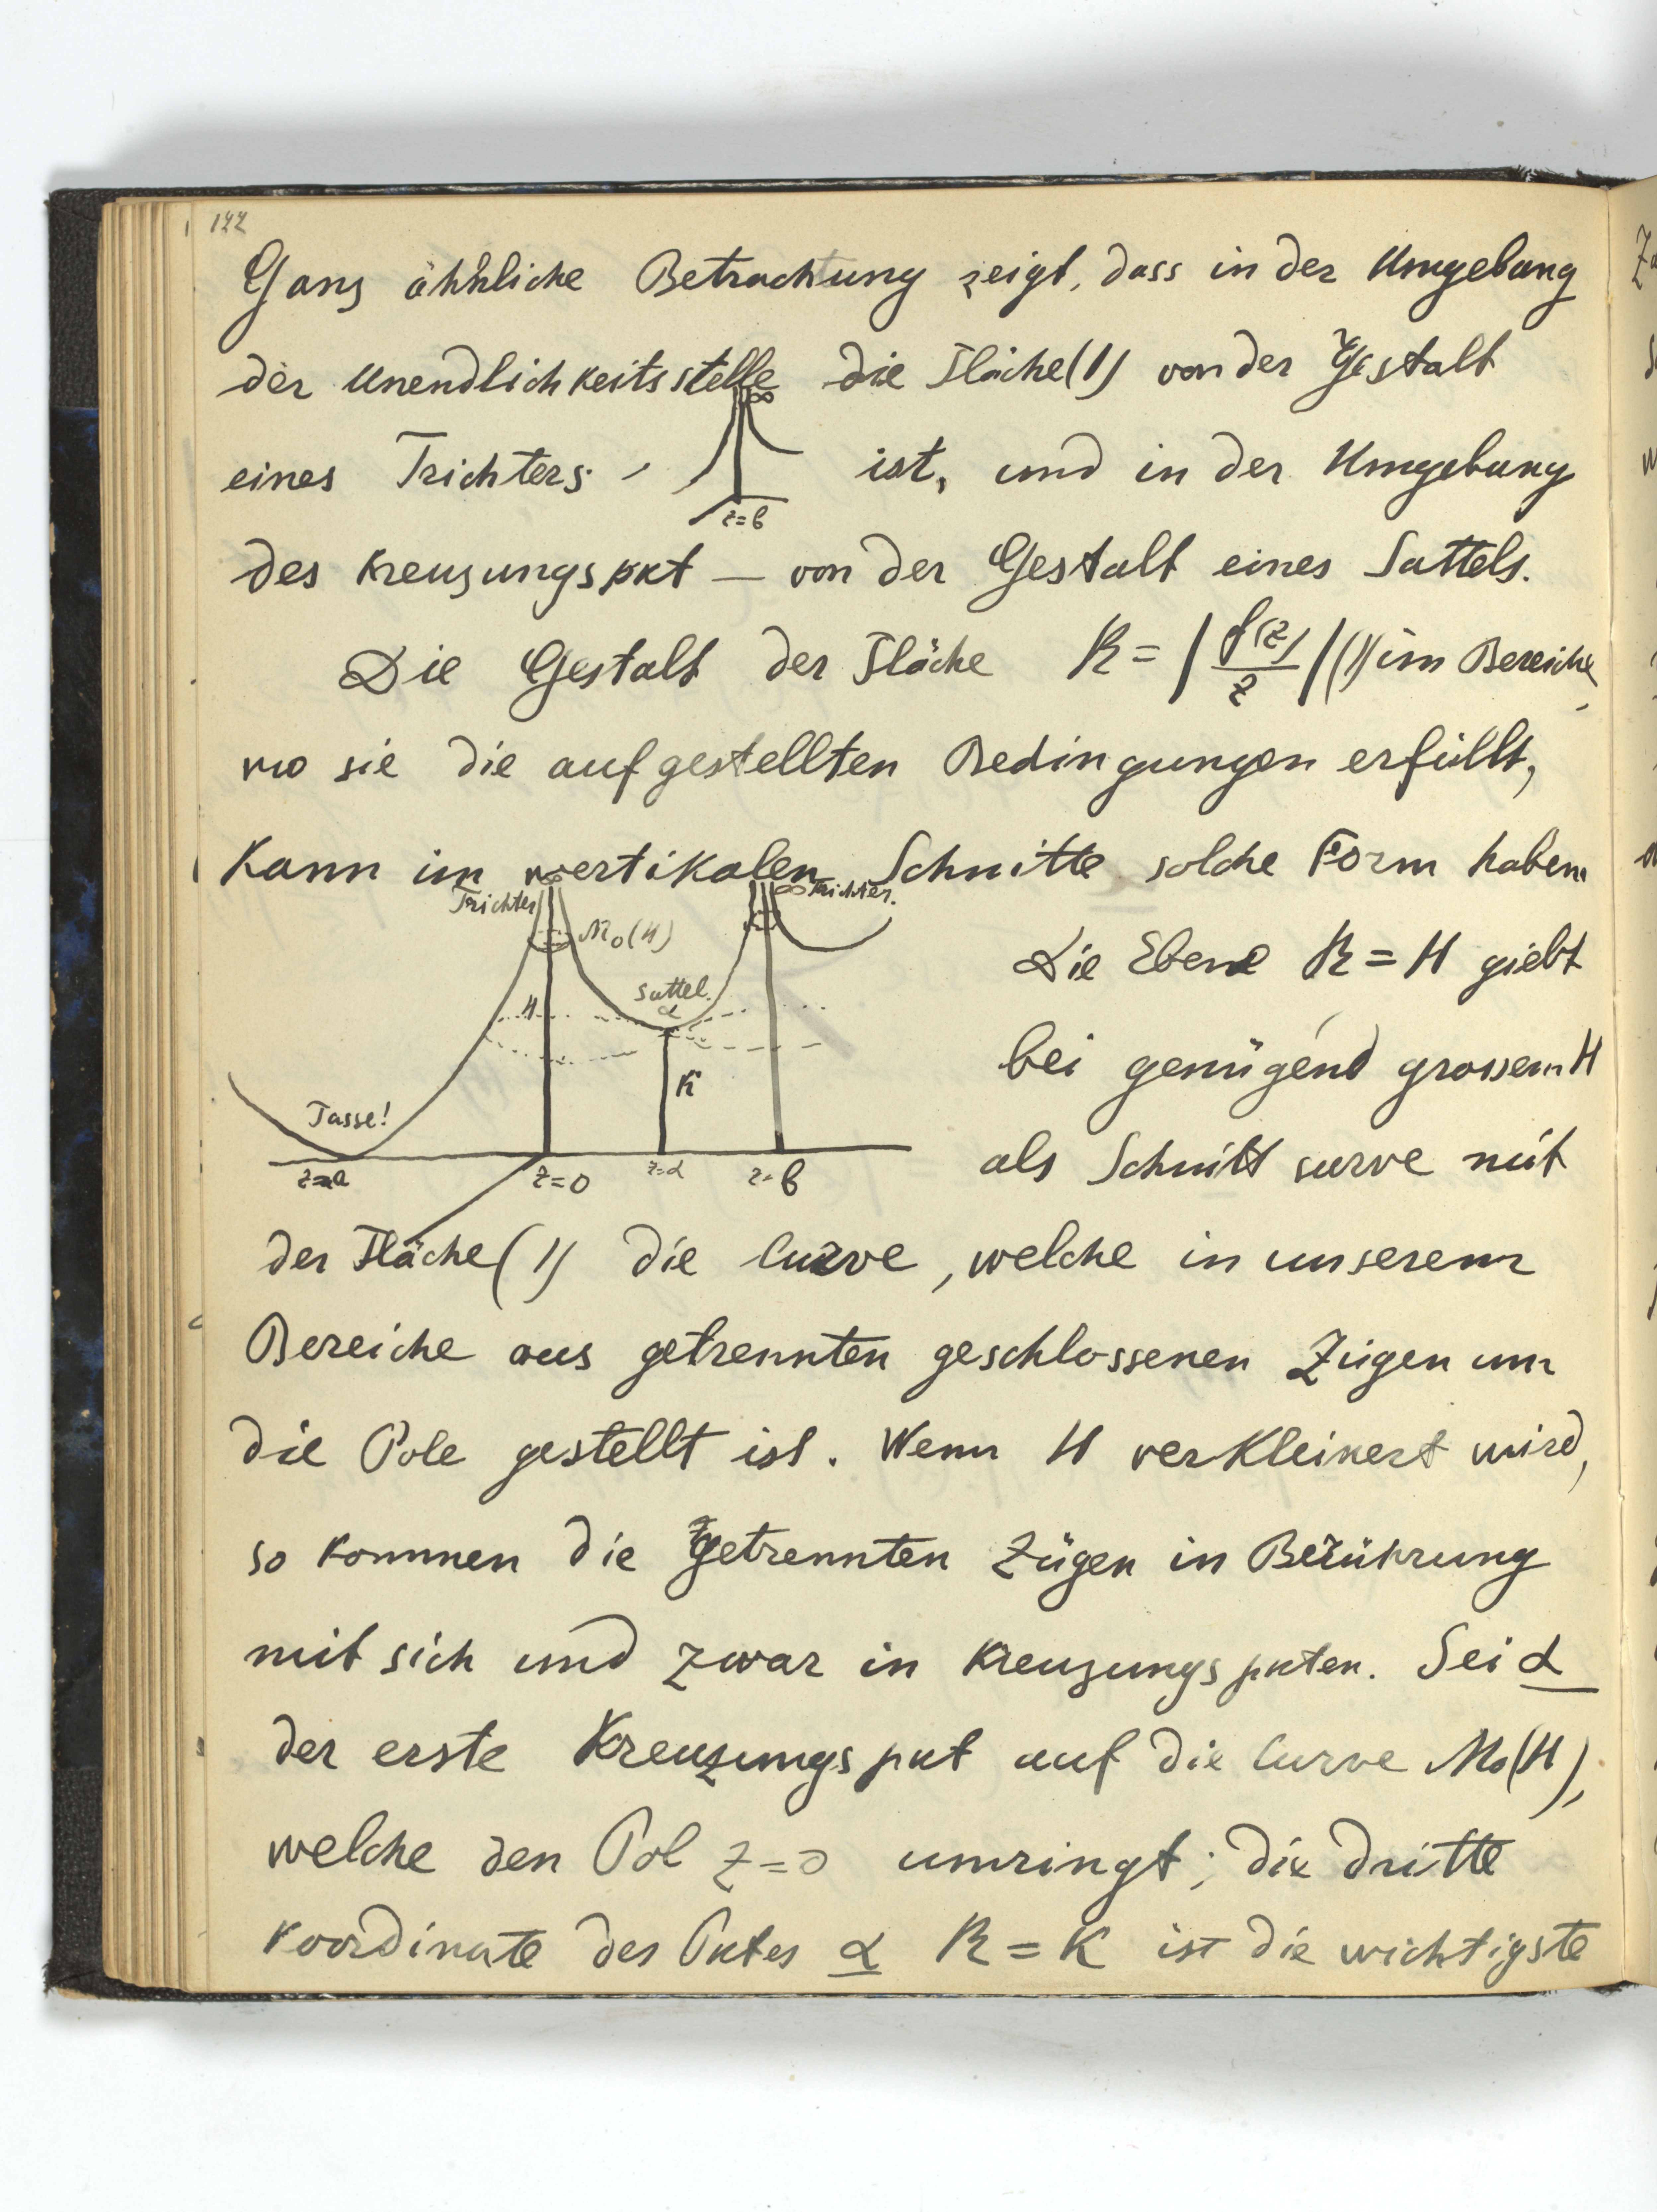 122
Ganz ähnliche Betrachtung zeigt, dass in der Umgebung
der Unendlichkeitsstelle die Fläche (1) von der Gestalt
∞
eines Trichters ist, und in der Umgebung
z=b
des Kreuzungspkt — von der Gestalt eines Sattels.
Die Gestalt der Fläche R = |f(z)/z| (1) im Bereiche,
wo sie die aufgestellten Bedingungen erfüllt,
kann im vertikalen Schnitte solche Form haben
∞ Trichter
∞ Trichter.
M₀(H)
Sattel.
α
H
K
Tasse!
z=a z=0 z=α z=b
Die Ebene R = H giebt
bei genügend grossem H
als Schnitt curve mit
der Fläche (1) die Curve, welche in unserem
Bereiche aus getrennten geschlossenen Zügen um
die Pole gestellt ist. Wenn H verkleinert wird,
so kommen die getrennten Zügen in Berührung
mit sich und zwar in Kreuzungspkten. Sei α
der erste Kreuzungspkt auf die Curve M₀(H),
welche den Pol z=0 umringt; die dritte
Koordinate des Pktes α R = K ist die wichtigste